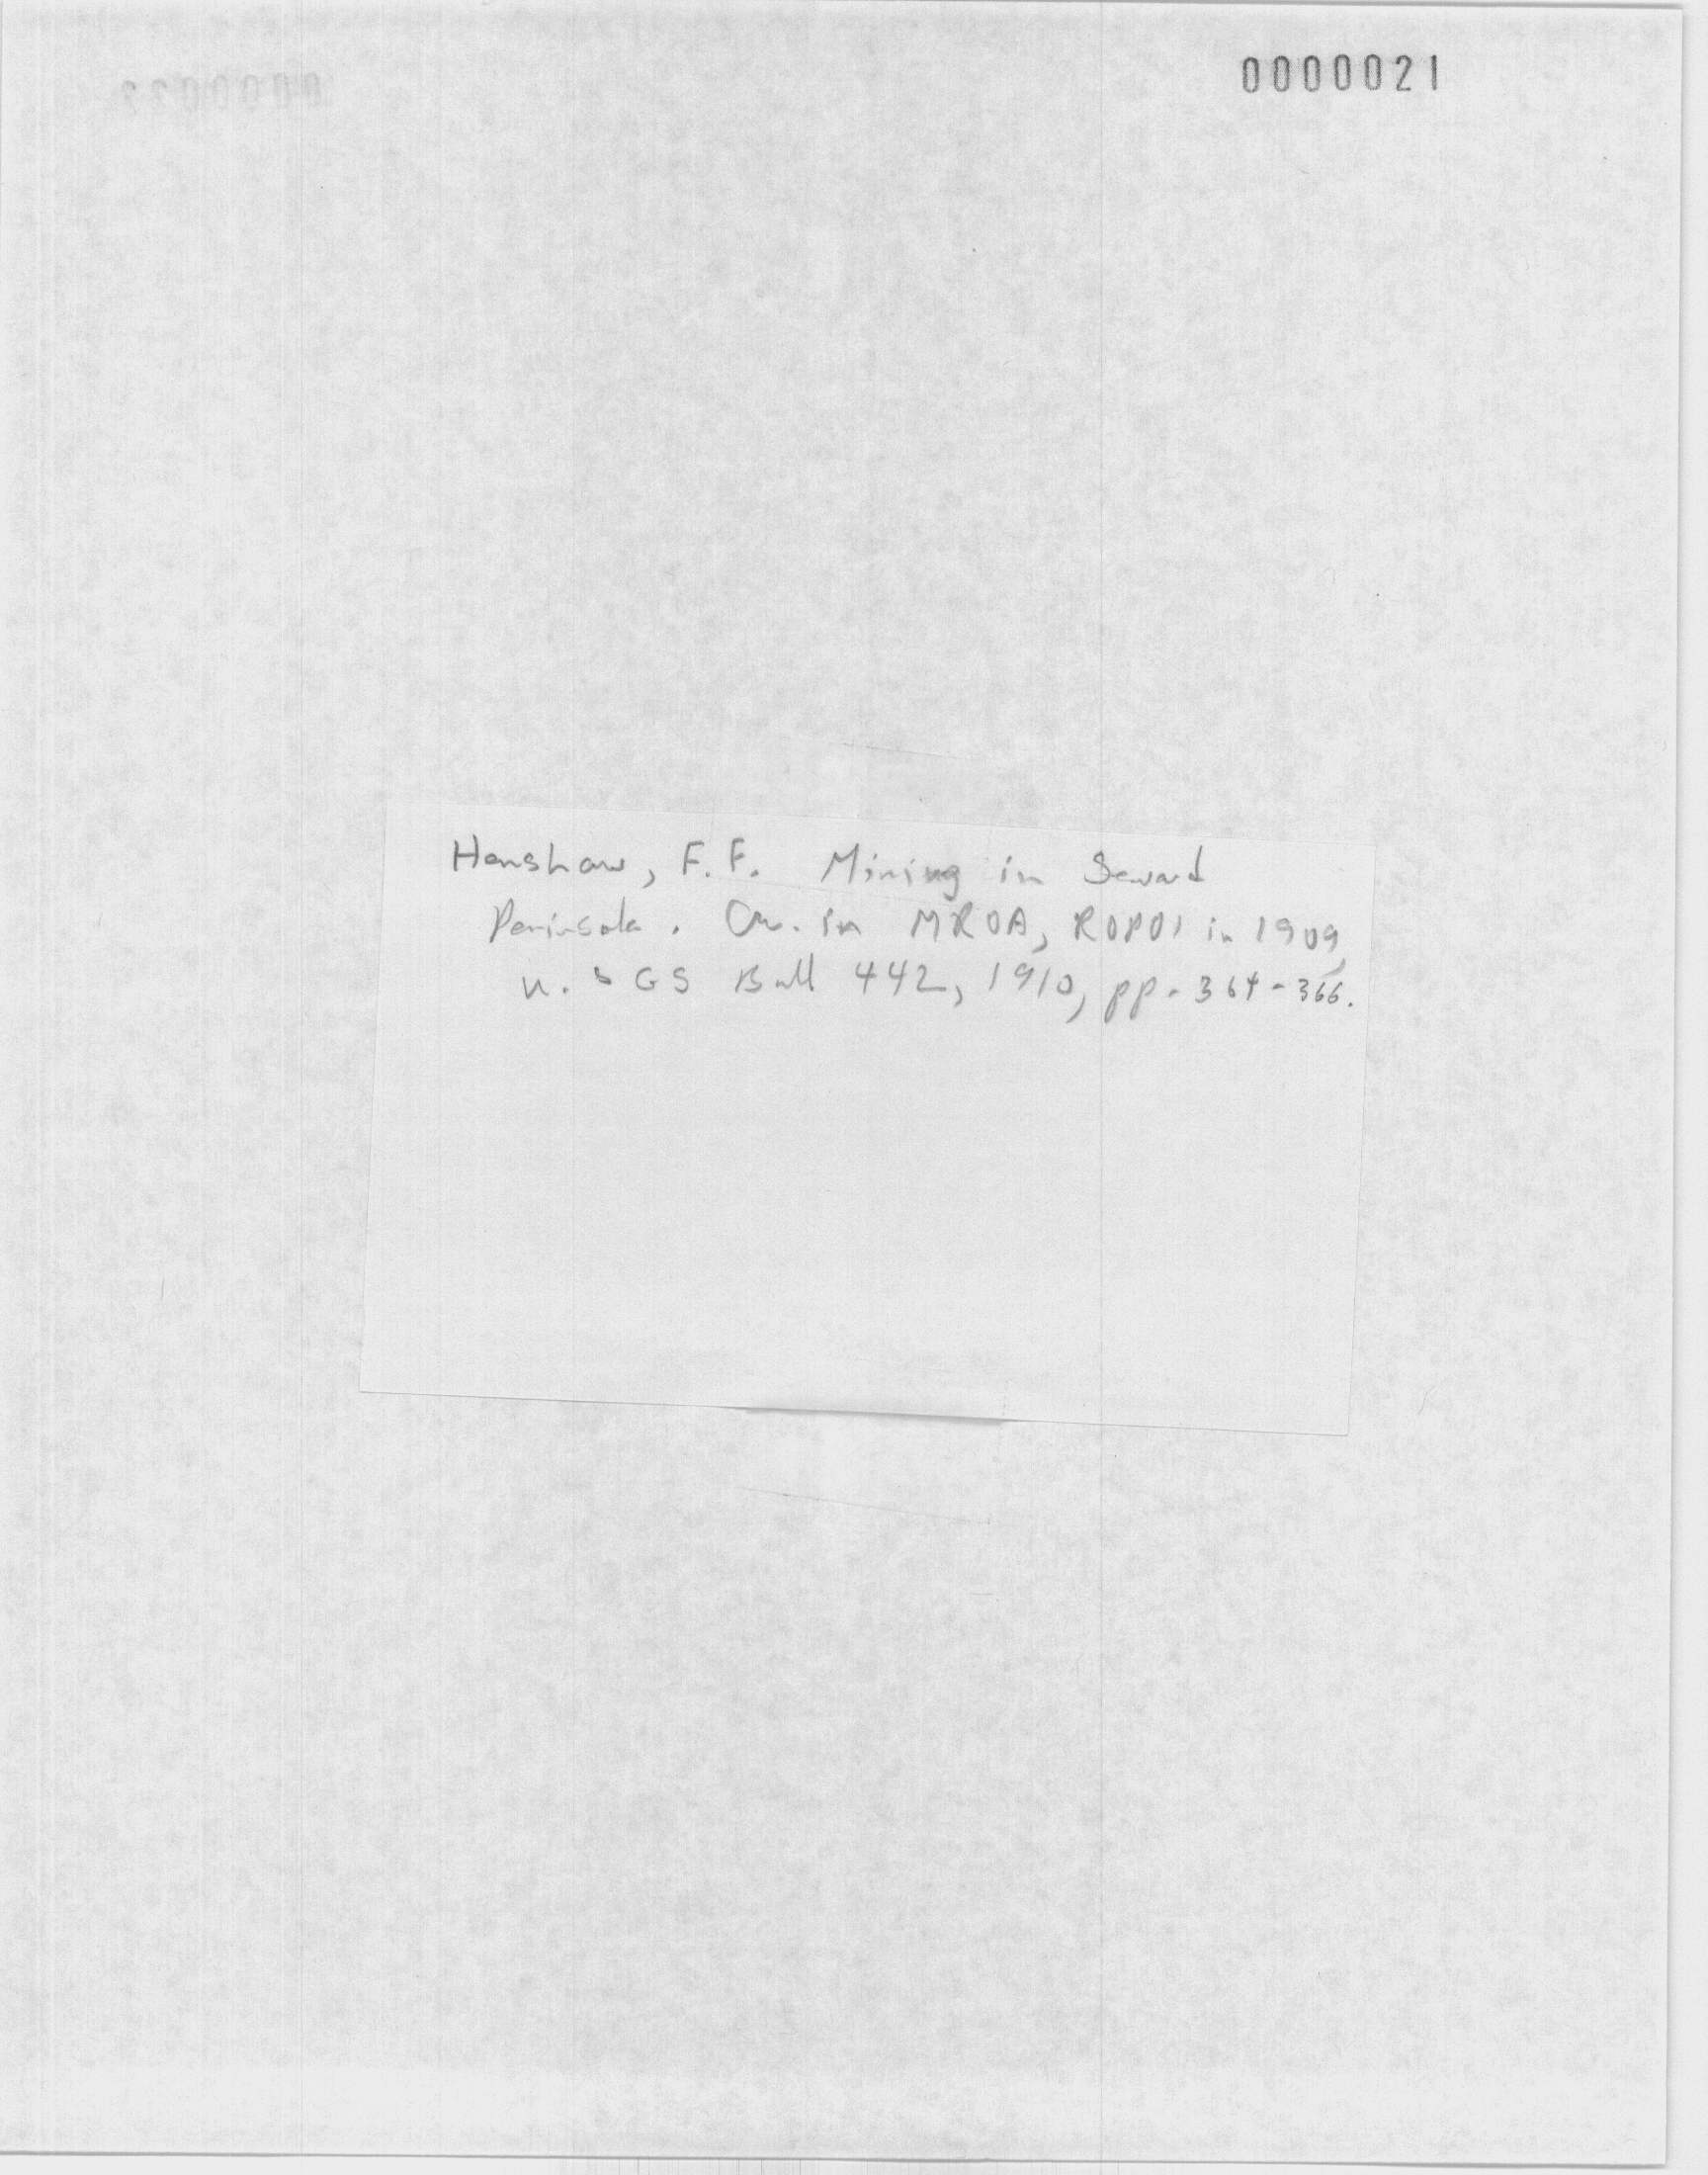 0000021
Henshaw, F. F. Mining in Seward
Peninsula. Ch. in MROA, ROPOI in 1909,
U.S GS Bull 442, 1910, pp. 364-366.